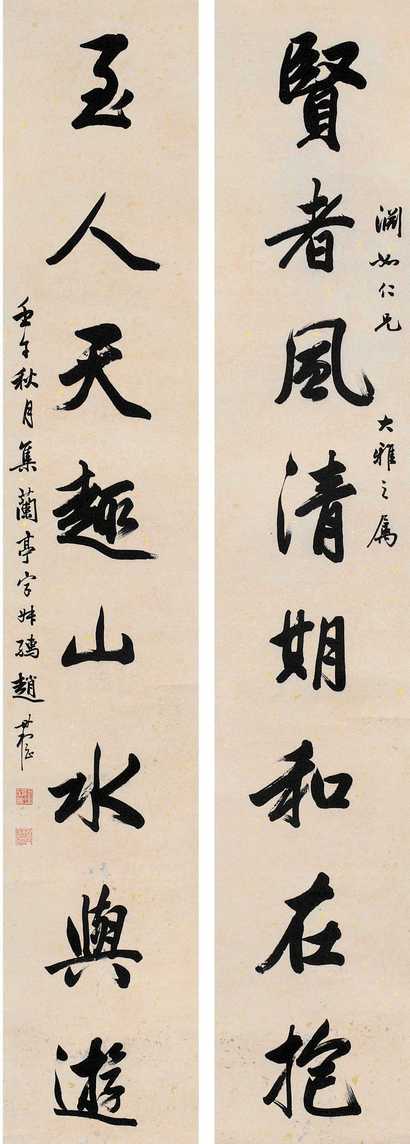 淵如仁兄 大雅之屬
賢者風清期和在抱
至人天趣山水與遊
壬午秋月集蘭亭字 趙